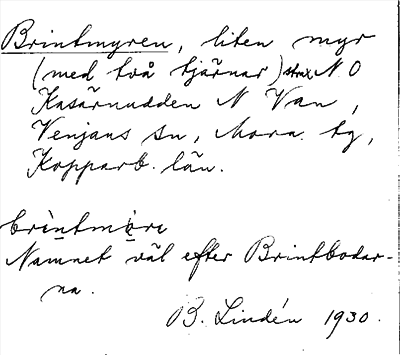 Brintmyren, liten myr
(med två tjärnar) strax N. O
Kasärnudden N Van,
Venjans sn, Mora tg,
Kopparb. län.
brintmỳre
Namnet väl efter Brintbodar-
na.
B. Lindén 1930.